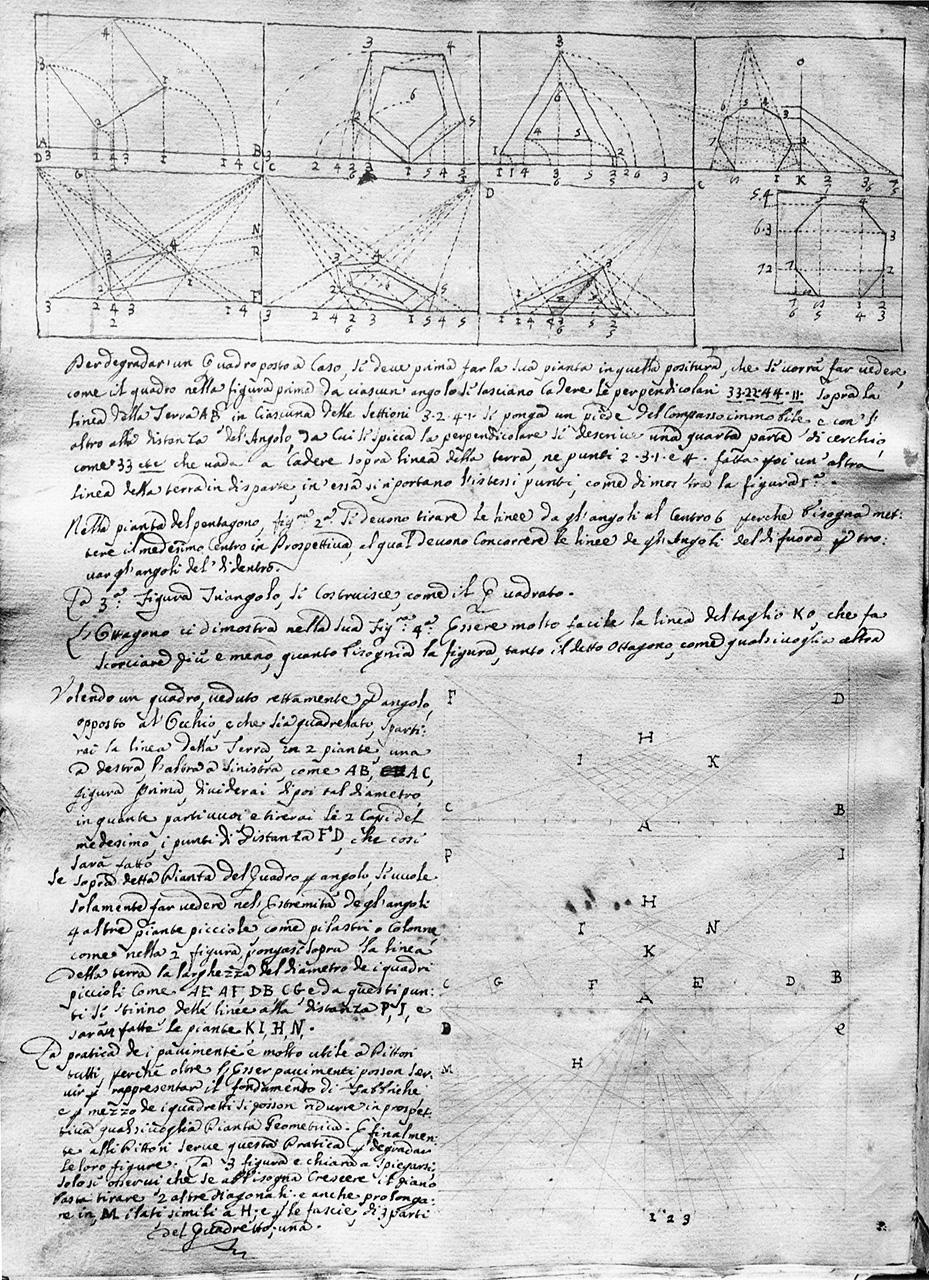 Per degradar un Quadro posto a Caso, si deve prima far la sua pianta in quella positura, che si vorrà far vedere,
come il quadro nella figura prima da ciascun angolo si lasciano Cadere le perpendicolari 33·22·44·11· sopra la
linea della Terra AB, in Ciascuna delle Settioni 3·2·4·1· si ponga un piede del Compasso immobile e con l'
altro alla distanza del Angolo, da Cui si spicca la perpendicolare si descrive una quarta parte di cerchio
come 33 etc che vada a Cadere sopra linea della terra, ne punti 2·3·1· e 4· fatta poi un altra
linea della terra in disparte, in essa si riportano l'istessi punti, come dimostra la figura
Nella pianta del pentagono, fig. 2ª si devono tirare le linee da gl'angoli al Centro 6 perche bisogna met:
tere il medesimo Centro in Prospettiva, al qual devono Concorrere le linee de gl'Angoli del di fuora, p tro:
var gl'angoli del di dentro.
La 3ª Figura Triangolo, si Costruisce, come il Quadrato.
L'Ottagono ci dimostra nella sua fig. 4ª Essere molto facile la linea del taglio KO, che fa
scorciare più e meno, quanto bisognia la figura, tanto il detto Ottagono, come qualsivoglia altra
Volendo un quadro, veduto rettamente p angolo,
opposto al'Occhio, e che sia quadrellato, sparti:
rai la linea della Terra in 2 piante, una
a destra, l'altra a sinistra, come AB, AC,
figura prima, dividerai dipoi tal diametro
in quante parti vuoi e tirerai le 2 Capi del
medesimo, i punti di distanza FD, che cosi
sarà fatto
Se sopra detta Pianta del Quadro p angolo, si vuole
solamente far vedere nel'Estremità de gl'angoli
4 altre piante picciole come pilastri o Colonne
come nella 2 figura pongasi sopra la linea
della terra la larghezza del diametro de i quadri
piccioli Come AE AF DB CG e da questi pun:
ti si tirino delle linee alla distanza P, I, e
saran fatte le piante K I, H N.
La pratica de i pavimenti è molto utile a Pittori
tutti, perche oltre l'Esser pavimenti posson ser:
vir p rappresentar il fondamento di Fabbriche
e p mezzo de i quadretti si posson ridurre in prospet:
tiva qualsivoglia Pianta Geometrica. E finalmen:
te alli Pittori serve questa Pratica p degradar
le loro figure. La 3 figura e chiara a spiegarsi
solo si osservi che se abbisogna Crescere il piano
basta tirare 2 altre diagonali e anche prolonga:
re in M i lati simili a H e p le fascie, di 3 parti
del Quadretto, una.
F D
H
I K
C A B
P I
H
I N
K
C G F A E D B
D e
M H
1 2 3